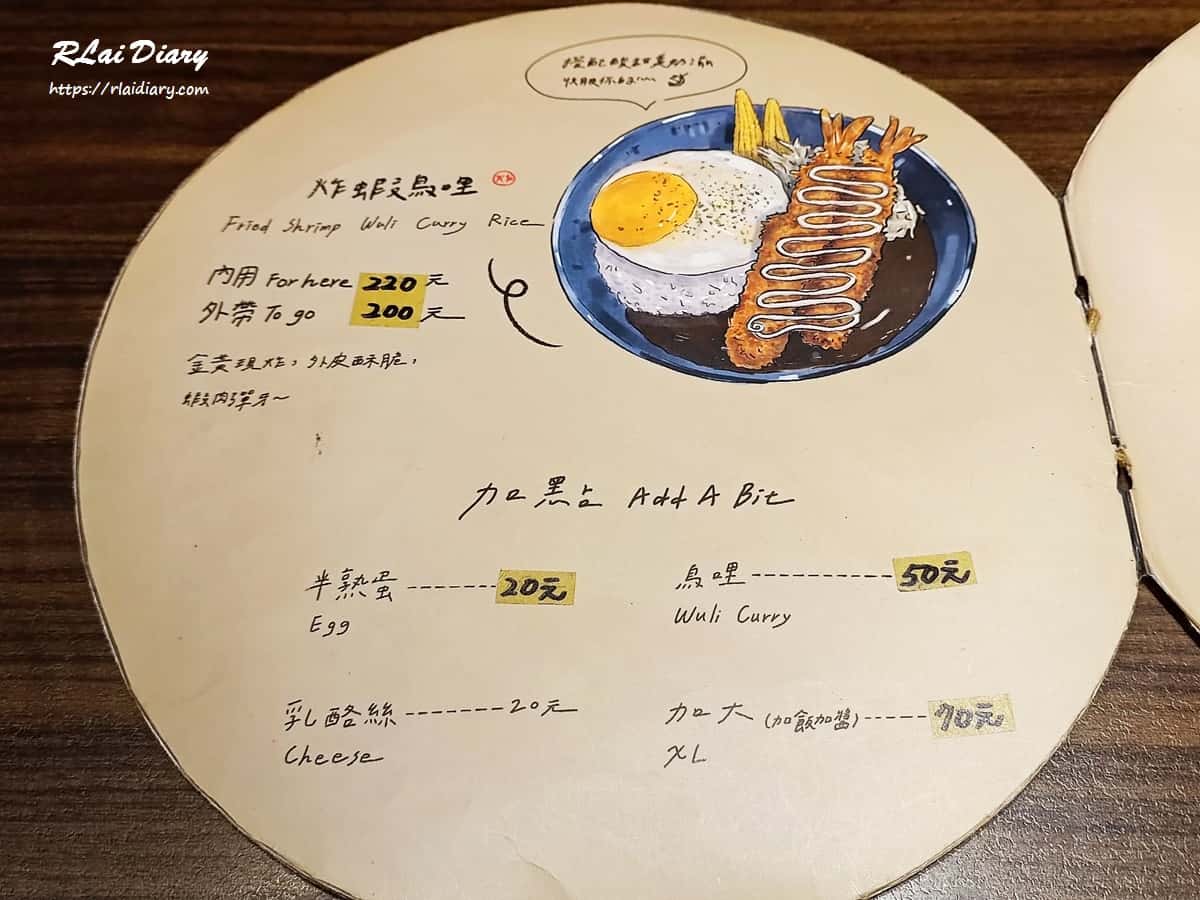 RLai Diary
https://rlaidiary.com
炸蝦烏哩
Fried Shrimp Wuli Curry Rice
內用 For here 220元
外帶 To go 200元
金黃現炸，外皮酥脆，
蝦肉彈牙~
加點 Add A Bit
半熟蛋-------20元
Egg
烏哩------------50元
Wuli Curry
乳酪絲-------20元
Cheese
加大(加飯加醬)-----70元
XL